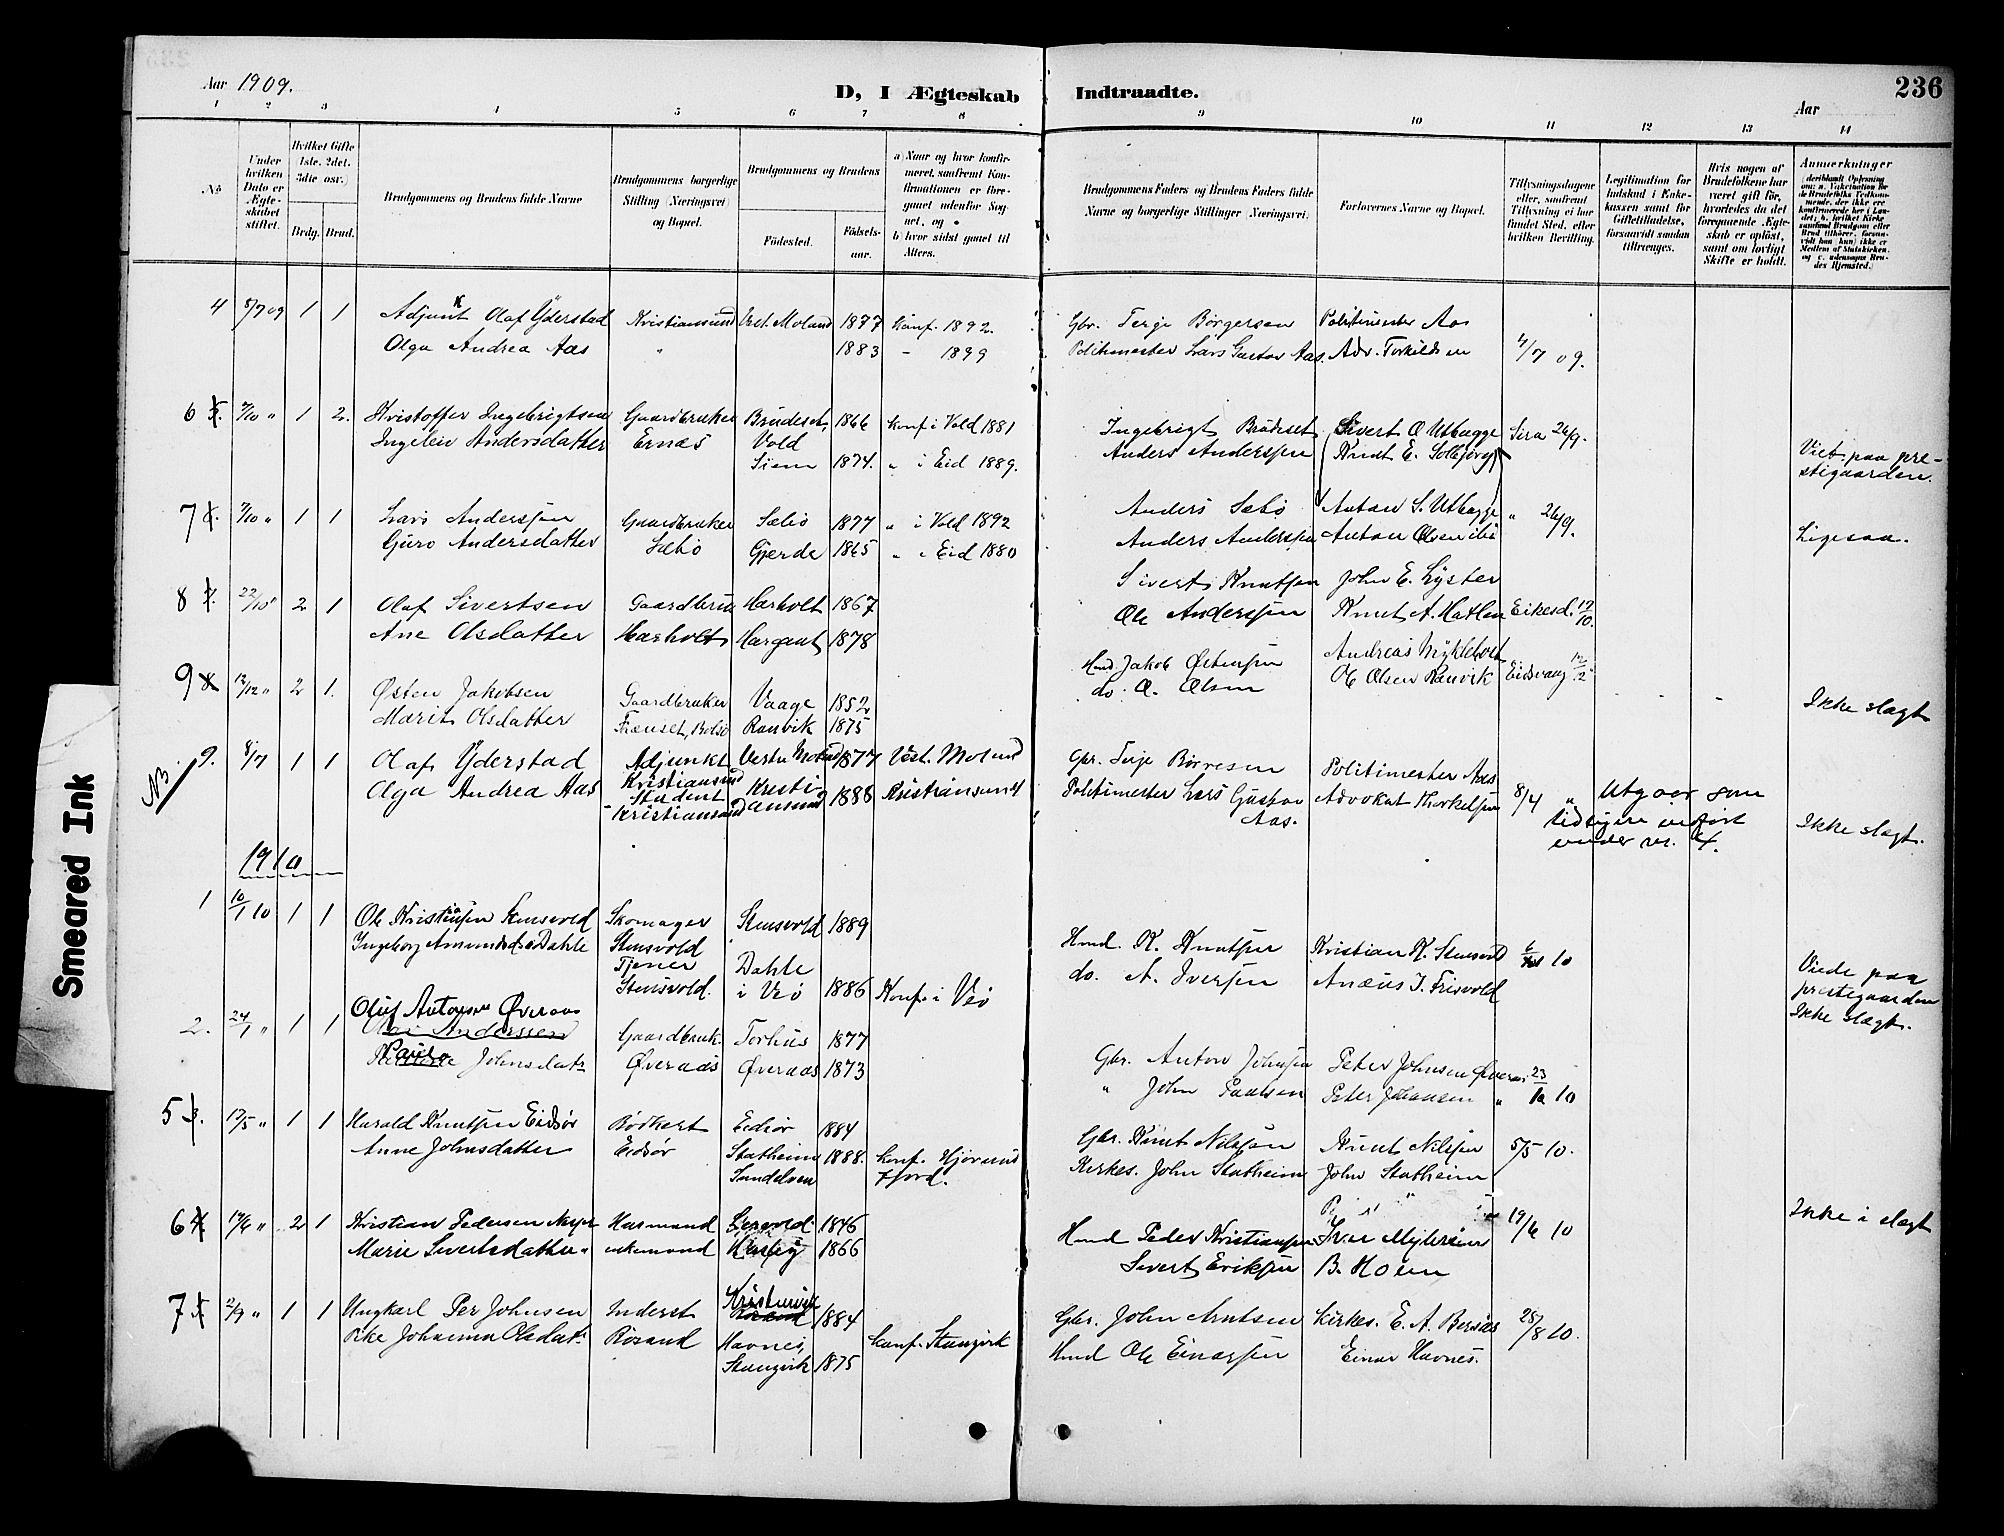 236
Aar 1909.
D, I Ægteskab Indtraadte.
Aar
1 2 3 4 5 6 7 8 9 10 11 12 13 14
No
Under hvilken Dato er Ægteskabet stiftet.
Hvilket Gifte (1ste, 2det, 3die osv.)
Brdg. Brud.
Brudgommens og Brudens fulde Navne
Brudgommens borgerlige Stilling (Næringsvei) og Bopæl.
Brudgommens og Brudens
Fødested. Fødsels-aar.
a) Naar og hvor konfirmeret, samfremt Konfirmationen er foregaaet udenfor Sognet, og
b) hvor sidst gaaet til Alters.
Brudgommens Faders og Brudens Faders fulde Navne og borgerlige Stillinger (Næringsvei)
Forlovernes Navne og Bopæl.
Tillysningsdagene eller, samfremt Tillysning ei har fundet Sted, efter hvilken Bevilling.
Legitimation for Indskud i Enkekassen samt for Giftetilladelse, forsaavidt saadan tiltrænges.
Hvis nogen af Brudefolkene har været gift før, hvorledes da det foregaaende Ægteskab er opløst, samt om lovligt Skifte er holdt.
Anmerkninger
4 8/7 09 1 1 Adjunkt Olaf Yderstad Kristiansund Vest. Moland 1877 Konf. 1892. Gbr. Terje Børgersen Politimester Aas
Olga Andrea Aas " 1883 - 1899 Politimester Lars Gustav Aas. Adv. Torkildsen 4/7 09.
6 7/10 " 1 2. Kristoffer Ingebrigtsen Gaardbruker Brudeset, 1866 Konf i Vold 1881 Ingebrigt Brudeset Sivert O Utbagge Sira 26/9.
Ingelev Andersdatter Ernæs Vold Anders Anderssen Knut E. Solbjørg
Siem 1874. " i Eid 1889. Viet paa prestigaarden.
7 7/10 " 1 1 Lars Anderssen Gaardbruker Sæbø 1877 " i Vold 1892 Anders Sæbø Anton S. Utbagge " 26/9.
Guro Andersdatter Sæbø Gjerde 1865 " i Eid 1880 Anders Anderssen Anton Olsen Ligesaa.
8 22/10 2 1 Olaf Sivertsen Gaardbru Hærholt 1867 Sivert Knutsen John E. Lyster
Ane Olsdatter Hærholt 1878 Ole Anderssen Knut A. Hatlen Eikesd. 17/10.
9 12/12 " 2 1. Østen Jakobsen Gaardbruker Vaage 1852 Hmd. Jakob Østensen Andreas Myklebost
Marit Olsdatter Frænset, Bolsø Ranvik 1875 do. O. Olsen Ole Olsen Ranvik Eidsvaag 12/2 Ikke slægt
NB 9. 8/7 1 1 Olaf Yderstad Adjunkt Vestre Moland 1877 Vest. Moland Gbr. Terje Børresen Politimester Aas
Olga Andrea Aas Kristiansund Student Kristiansund Kristiansund 1888 Kristiansund Politimester Lars Gustav Aas. Advokat Thorkelsen 8/4 " Utgaar som tidligere indført under nr. 4. Ikke slægt.
1910
1 10/1 10 1 1 Ole Kristiansen Stensvold Skomager Stensvold 1889 Hmd. K. Knutsen Kristian K. Stensvold 6/1 10
Ingeborg Amundsd. Dahle Stensvold Tjener Stensvold. Dahle i Veø 1886 Konf. i Veø do. A. Iversen Anæus I. Frisvold Viede paa prestegaarden Ikke slægt.
2. 24/1 " 1 1 Oluf Antonsen Øveraas Gaardbruk. Torhus 1877 Gbr. Anton Johnsen Peter Johnsen Øveraas 23/1 10
Johnsdatr Øveraas Øveraas 1873 " John Paulsen Peter Johansen "
5 17/5 " 1 1 Harald Knutsen Eidsør Bødkert Eidsør 1884 Gbr. Knut Nilssen Knut Nilssen 5/5 10.
Anne Johnsdatter Eidsør Statheim Sundelven 1888. Konf. Hjørund Fjord. Kirkes. John Statheim John Statheim
6 19/6 " 2 1 Kristian Pedersen Husmand 1846 Hmd Peder Kristiansen Iver 19/6 10 Ikke i slægt
Marie Sivertsdatter enkemand 1866 Sivert Eriksen B. Hosen
7 2/9 " 1 1 Ungkarl Per Johnsen Inderst Kristvik 1884 Gbr. John Arntsen Kirkes. E. A. Bersaas 28/8 10.
Pike Johanna Olsdatr Rørand Havnes, Stangvik 1875 Konf. Stangvik Hmd Ole Einarsen Einar Havnes.
Smeared Ink